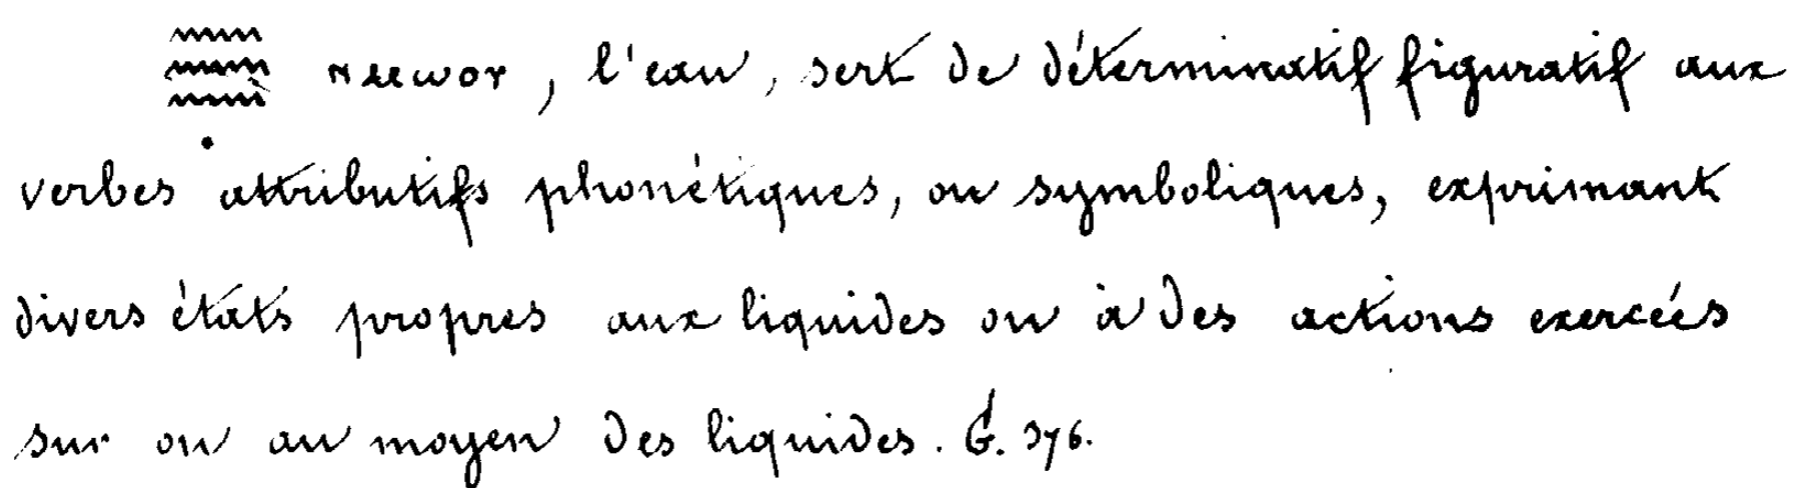 𓈗 ⲛⲙⲙⲱⲟⲩ, l'eau, sert de déterminatif figuratif aux
verbes attributifs phonétiques, ou symboliques, exprimant
divers états propres aux liquides ou à des actions exercées
sur ou au moyen des liquides. G. 376.